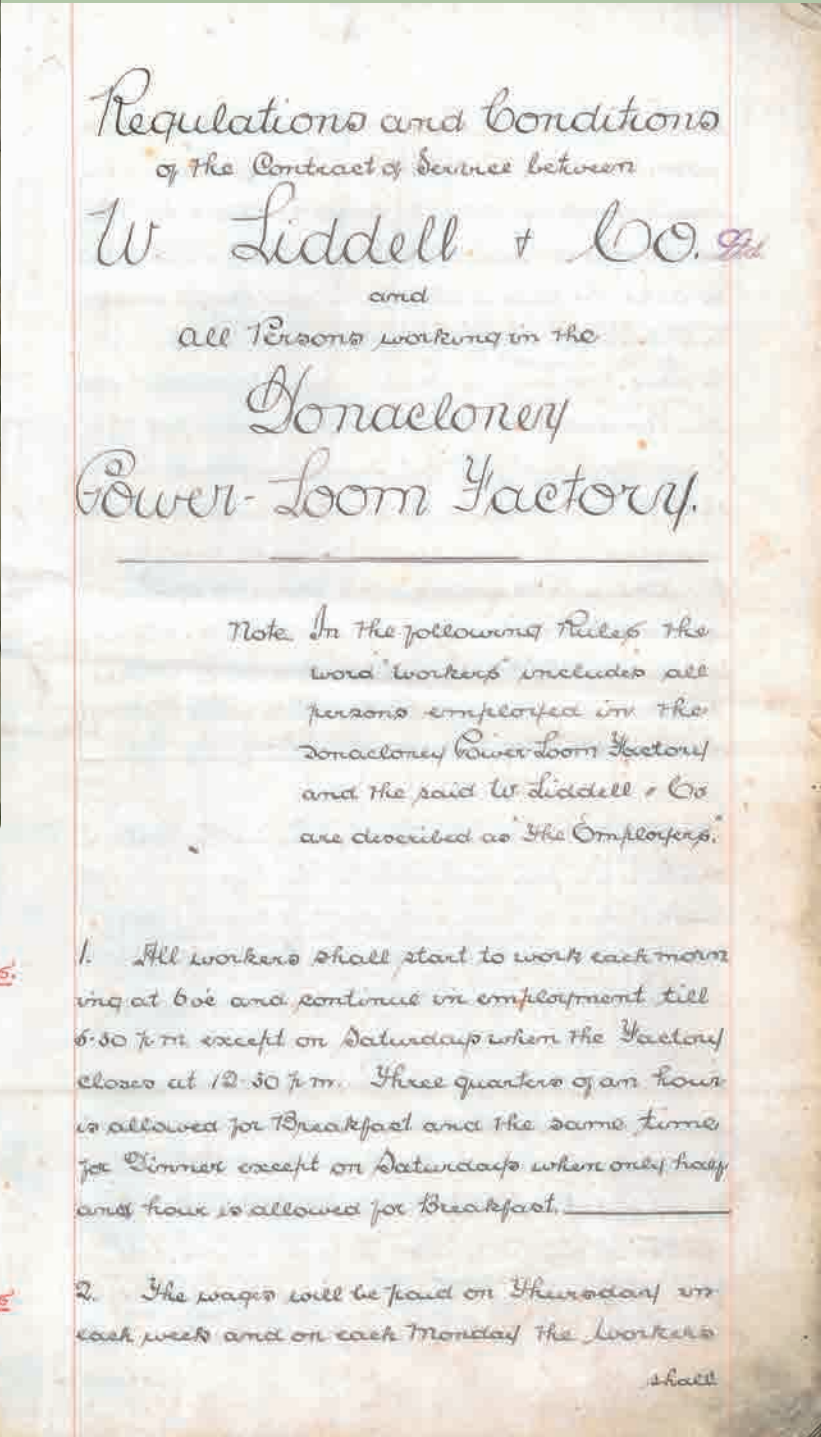 Regulations and Conditions
of the Contract of Service between
W Liddell & Co. Ltd.
and
all Persons working in the
Donacloney
Power-Loom Factory.
Note In the following Rules the
word "workers" includes all
persons employed in the
Donacloney Power-Loom Factory
and the said W Liddell & Co
are described as "The Employers."
1. All workers shall start to work each morn
5.
ing at 6 o'c and continue in employment till
5·30 p m except on Saturdays when the Factory
closes at 12·30 p m. Three quarters of an hour
is allowed for Breakfast and the same time
for Dinner except on Saturdays when only half
and hour is allowed for Breakfast.
2. The wages will be paid on Thursday in
5
each week and on each Monday the workers
shall